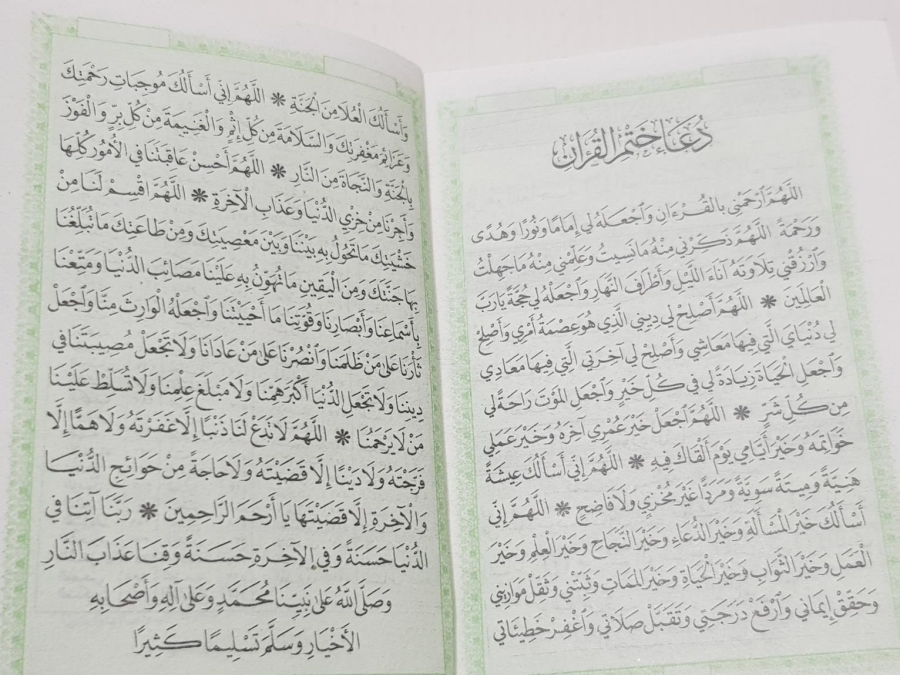 دُعَاءُ خَتْمِ الْقُرْآنِ
اللَّهُمَّ ٱرْحَمْنِي بِالْقُرْءَانِ وَٱجْعَلْهُ لِي إِمَامًا وَنُورًا وَهُدًى
وَرَحْمَةً اللَّهُمَّ ذَكِّرْنِي مِنْهُ مَا نَسِيتُ وَعَلِّمْنِي مِنْهُ مَا جَهِلْتُ
وَٱرْزُقْنِي تِلَاوَتَهُ آنَاءَ اللَّيْلِ وَأَطْرَافَ النَّهَارِ وَٱجْعَلْهُ لِي حُجَّةً يَارَبَّ
الْعَالَمِينَ ❋ اللَّهُمَّ أَصْلِحْ لِي دِينِي الَّذِي هُوَ عِصْمَةُ أَمْرِي وَأَصْلِحْ
لِي دُنْيَايَ الَّتِي فِيهَا مَعَاشِي وَأَصْلِحْ لِي آخِرَتِي الَّتِي فِيهَا مَعَادِي
وَٱجْعَلِ الْحَيَاةَ زِيَادَةً لِي فِي كُلِّ خَيْرٍ وَٱجْعَلِ الْمَوْتَ رَاحَةً لِي
مِن كُلِّ شَرٍّ ❋ اللَّهُمَّ ٱجْعَلْ خَيْرَ عُمْرِي آخِرَهُ وَخَيْرَ عَمَلِي
خَوَاتِمَهُ وَخَيْرَ أَيَّامِي يَوْمَ أَلْقَاكَ فِيهِ ❋ اللَّهُمَّ إِنِّي أَسْأَلُكَ عِيشَةً
هَنِيَّةً وَمِيتَةً سَوِيَّةً وَمَرَدًّا غَيْرَ مُخْزِي وَلَا فَاضِحٍ ❋ اللَّهُمَّ إِنِّي
أَسْأَلُكَ خَيْرَ الْمَسْأَلَةِ وَخَيْرَ الدُّعَاءِ وَخَيْرَ النَّجَاحِ وَخَيْرَ الْعِلْمِ وَخَيْرَ
الْعَمَلِ وَخَيْرَ الثَّوَابِ وَخَيْرَ الْحَيَاةِ وَخَيْرَ الْمَمَاتِ وَثَبِّتْنِي وَثَقِّلْ مَوَازِينِي
وَحَقِّقْ إِيمَانِي وَٱرْفَعْ دَرَجَتِي وَتَقَبَّلْ صَلَاتِي وَٱغْفِرْ خَطِيئَاتِي
وَأَسْأَلُكَ الْعُلَا مِنَ الْجَنَّةِ ❋ اللَّهُمَّ إِنِّي أَسْأَلُكَ مُوجِبَاتِ رَحْمَتِكَ
وَعَزَائِمَ مَغْفِرَتِكَ وَالسَّلَامَةَ مِنْ كُلِّ إِثْمٍ وَالْغَنِيمَةَ مِنْ كُلِّ بِرٍّ وَالْفَوْزَ
بِالْجَنَّةِ وَالنَّجَاةَ مِنَ النَّارِ ❋ اللَّهُمَّ أَحْسِنْ عَاقِبَتَنَا فِي الْأُمُورِ كُلِّهَا
وَأَجِرْنَا مِنْ خِزْيِ الدُّنْيَا وَعَذَابِ الْآخِرَةِ ❋ اللَّهُمَّ اقْسِمْ لَنَا مِنْ
خَشْيَتِكَ مَا تَحُولُ بِهِ بَيْنَنَا وَبَيْنَ مَعْصِيَتِكَ وَمِنْ طَاعَتِكَ مَا تُبَلِّغُنَا
بِهَا جَنَّتَكَ وَمِنَ الْيَقِينِ مَا تُهَوِّنُ بِهِ عَلَيْنَا مَصَائِبَ الدُّنْيَا وَمَتِّعْنَا
بِأَسْمَاعِنَا وَأَبْصَارِنَا وَقُوَّتِنَا مَا أَحْيَيْتَنَا وَٱجْعَلْهُ الْوَارِثَ مِنَّا وَٱجْعَلْ
ثَأْرَنَا عَلَى مَنْ ظَلَمَنَا وَٱنْصُرْنَا عَلَى مَنْ عَادَانَا وَلَا تَجْعَلْ مُصِيبَتَنَا فِي
دِينِنَا وَلَا تَجْعَلِ الدُّنْيَا أَكْبَرَ هَمِّنَا وَلَا مَبْلَغَ عِلْمِنَا وَلَا تُسَلِّطْ عَلَيْنَا
مَنْ لَا يَرْحَمُنَا ❋ اللَّهُمَّ لَا تَدَعْ لَنَا ذَنْبًا إِلَّا غَفَرْتَهُ وَلَا هَمًّا إِلَّا
فَرَّجْتَهُ وَلَا دَيْنًا إِلَّا قَضَيْتَهُ وَلَا حَاجَةً مِنْ حَوَائِجِ الدُّنْيَا
وَالْآخِرَةِ إِلَّا قَضَيْتَهَا يَا أَرْحَمَ الرَّاحِمِينَ ❋ رَبَّنَا آتِنَا فِي
الدُّنْيَا حَسَنَةً وَفِي الآخِرَةِ حَسَنَةً وَقِنَا عَذَابَ النَّارِ
وَصَلَّى اللَّهُ عَلَى نَبِيِّنَا مُحَمَّدٍ وَعَلَى آلِهِ وَأَصْحَابِهِ
الأَخْيَارِ وَسَلَّمَ تَسْلِيمًا كَثِيرًا